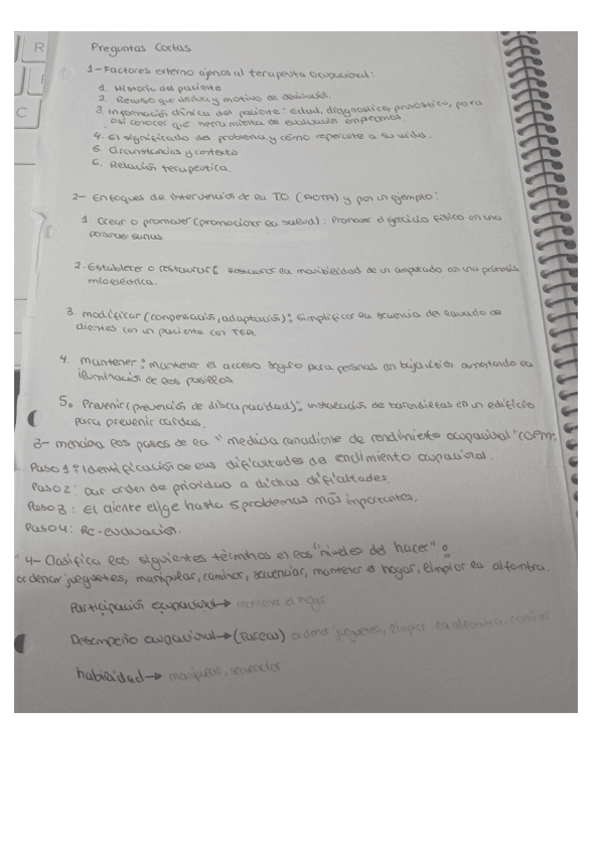 R
C
Preguntas Cortas
1-Factores externo ajenos al terapeuta ocupacional:
1. Historia del paciente
2. Recurso que deriva y motivo de derivación.
3. Información clínica del paciente: edad, diagnostico, pronóstico, para
así conocer que herramienta de evaluación empleamos.
4. El significado del problema y cómo repercute a su vida.
5. Circunstancias y contexto
6. Relación terapeutica.
2- Enfoques de intervención de la TO (AOTA) y pon un ejemplo:
1. Crear o promover (promocionar la salud): Promover el ejercicio físico en una
persona sana.
2. Establecer o restaurar: restaurar la movibilidad de un amputado con una prótesis
mioeléctrica.
3. modificar (compensación, adaptación): simplificar la secuencia de lavado de
dientes con un paciente con TEA.
4. mantener: mantener el acceso seguro para personas con baja visión aumentando la
iluminación de los pasillos
5. Prevenir (prevención de discapacidad): instalación de barandillas en un edificio
para prevenir caidas.
3- menciona los pasos de la "medida canadiense de rendimiento ocupacional" (COPM)
Paso 1: Identificación de las dificultades del rendimiento ocupacional.
Paso 2: Dar orden de prioridad a dichas dificultades.
Paso 3: El cliente elige hasta 5 problemas más importantes.
Paso 4: Re-evaluación.
4- Clasifica los siguientes términos en los "niveles del hacer":
ordenar juguetes, manipular, caminar, secuenciar, mantener el hogar, limpiar la alfombra.
Participación ocupacional → mantener el hogar
Desempeño ocupacional → (Tareas) ordenar juguetes, limpiar la alfombra, caminar
habilidad → manipular, secuenciar